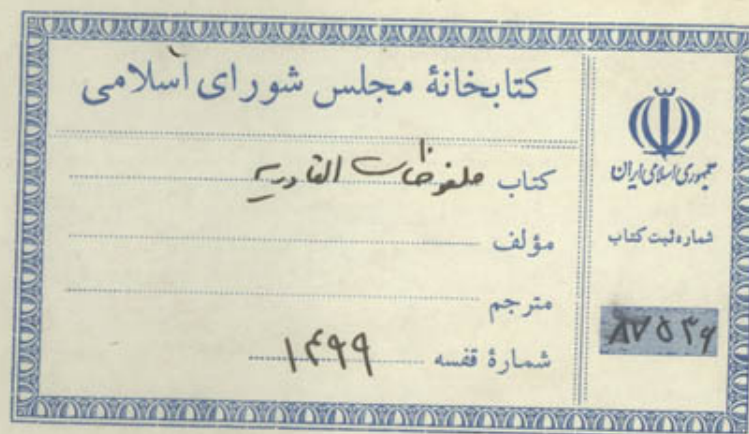 کتابخانهٔ مجلس شورای اسلامی
کتاب ملفوظات القادریه
مؤلف
مترجم
شمارهٔ قفسه ۱۴۹۹
جمهوری اسلامی ایران
شماره ثبت کتاب
۸۷۵۳۶